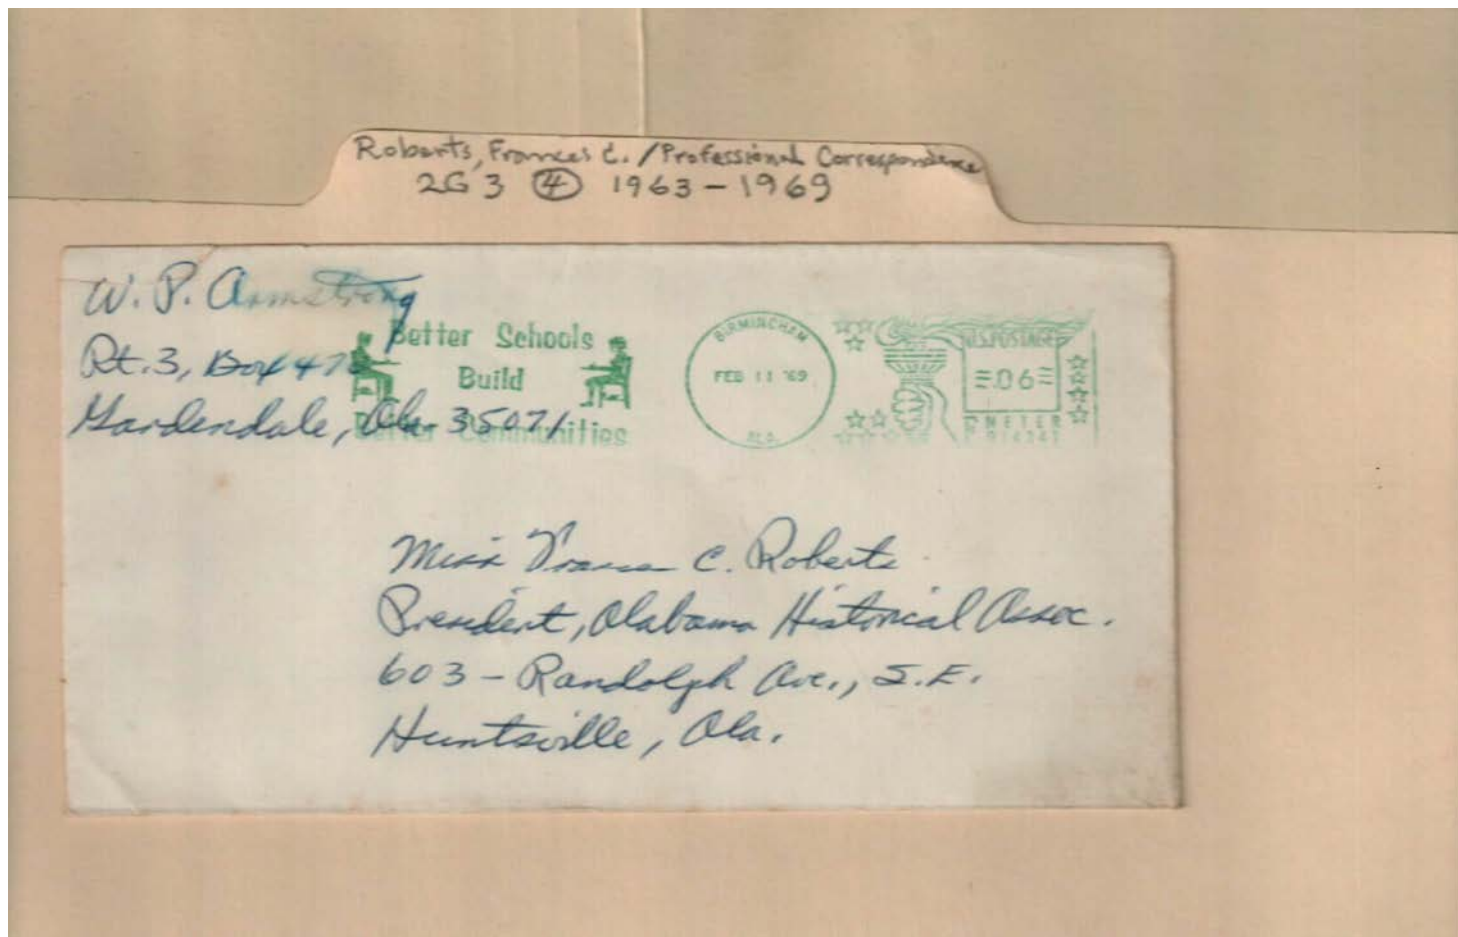 Roberts, Frances C. / Professional Correspondence
2G3 ④ 1963-1969
W. P. Armstrong
Rt. 3, Box 47
Gardendale, Ala. 35071
Better Schools
Build
Better Communities
BIRMINGHAM
FEB 11 '69
ALA.
U.S. POSTAGE
.06
METER
Miss Frances C. Roberts
President, Alabama Historical Assoc.
603 - Randolph Ave., S.E.
Huntsville, Ala.